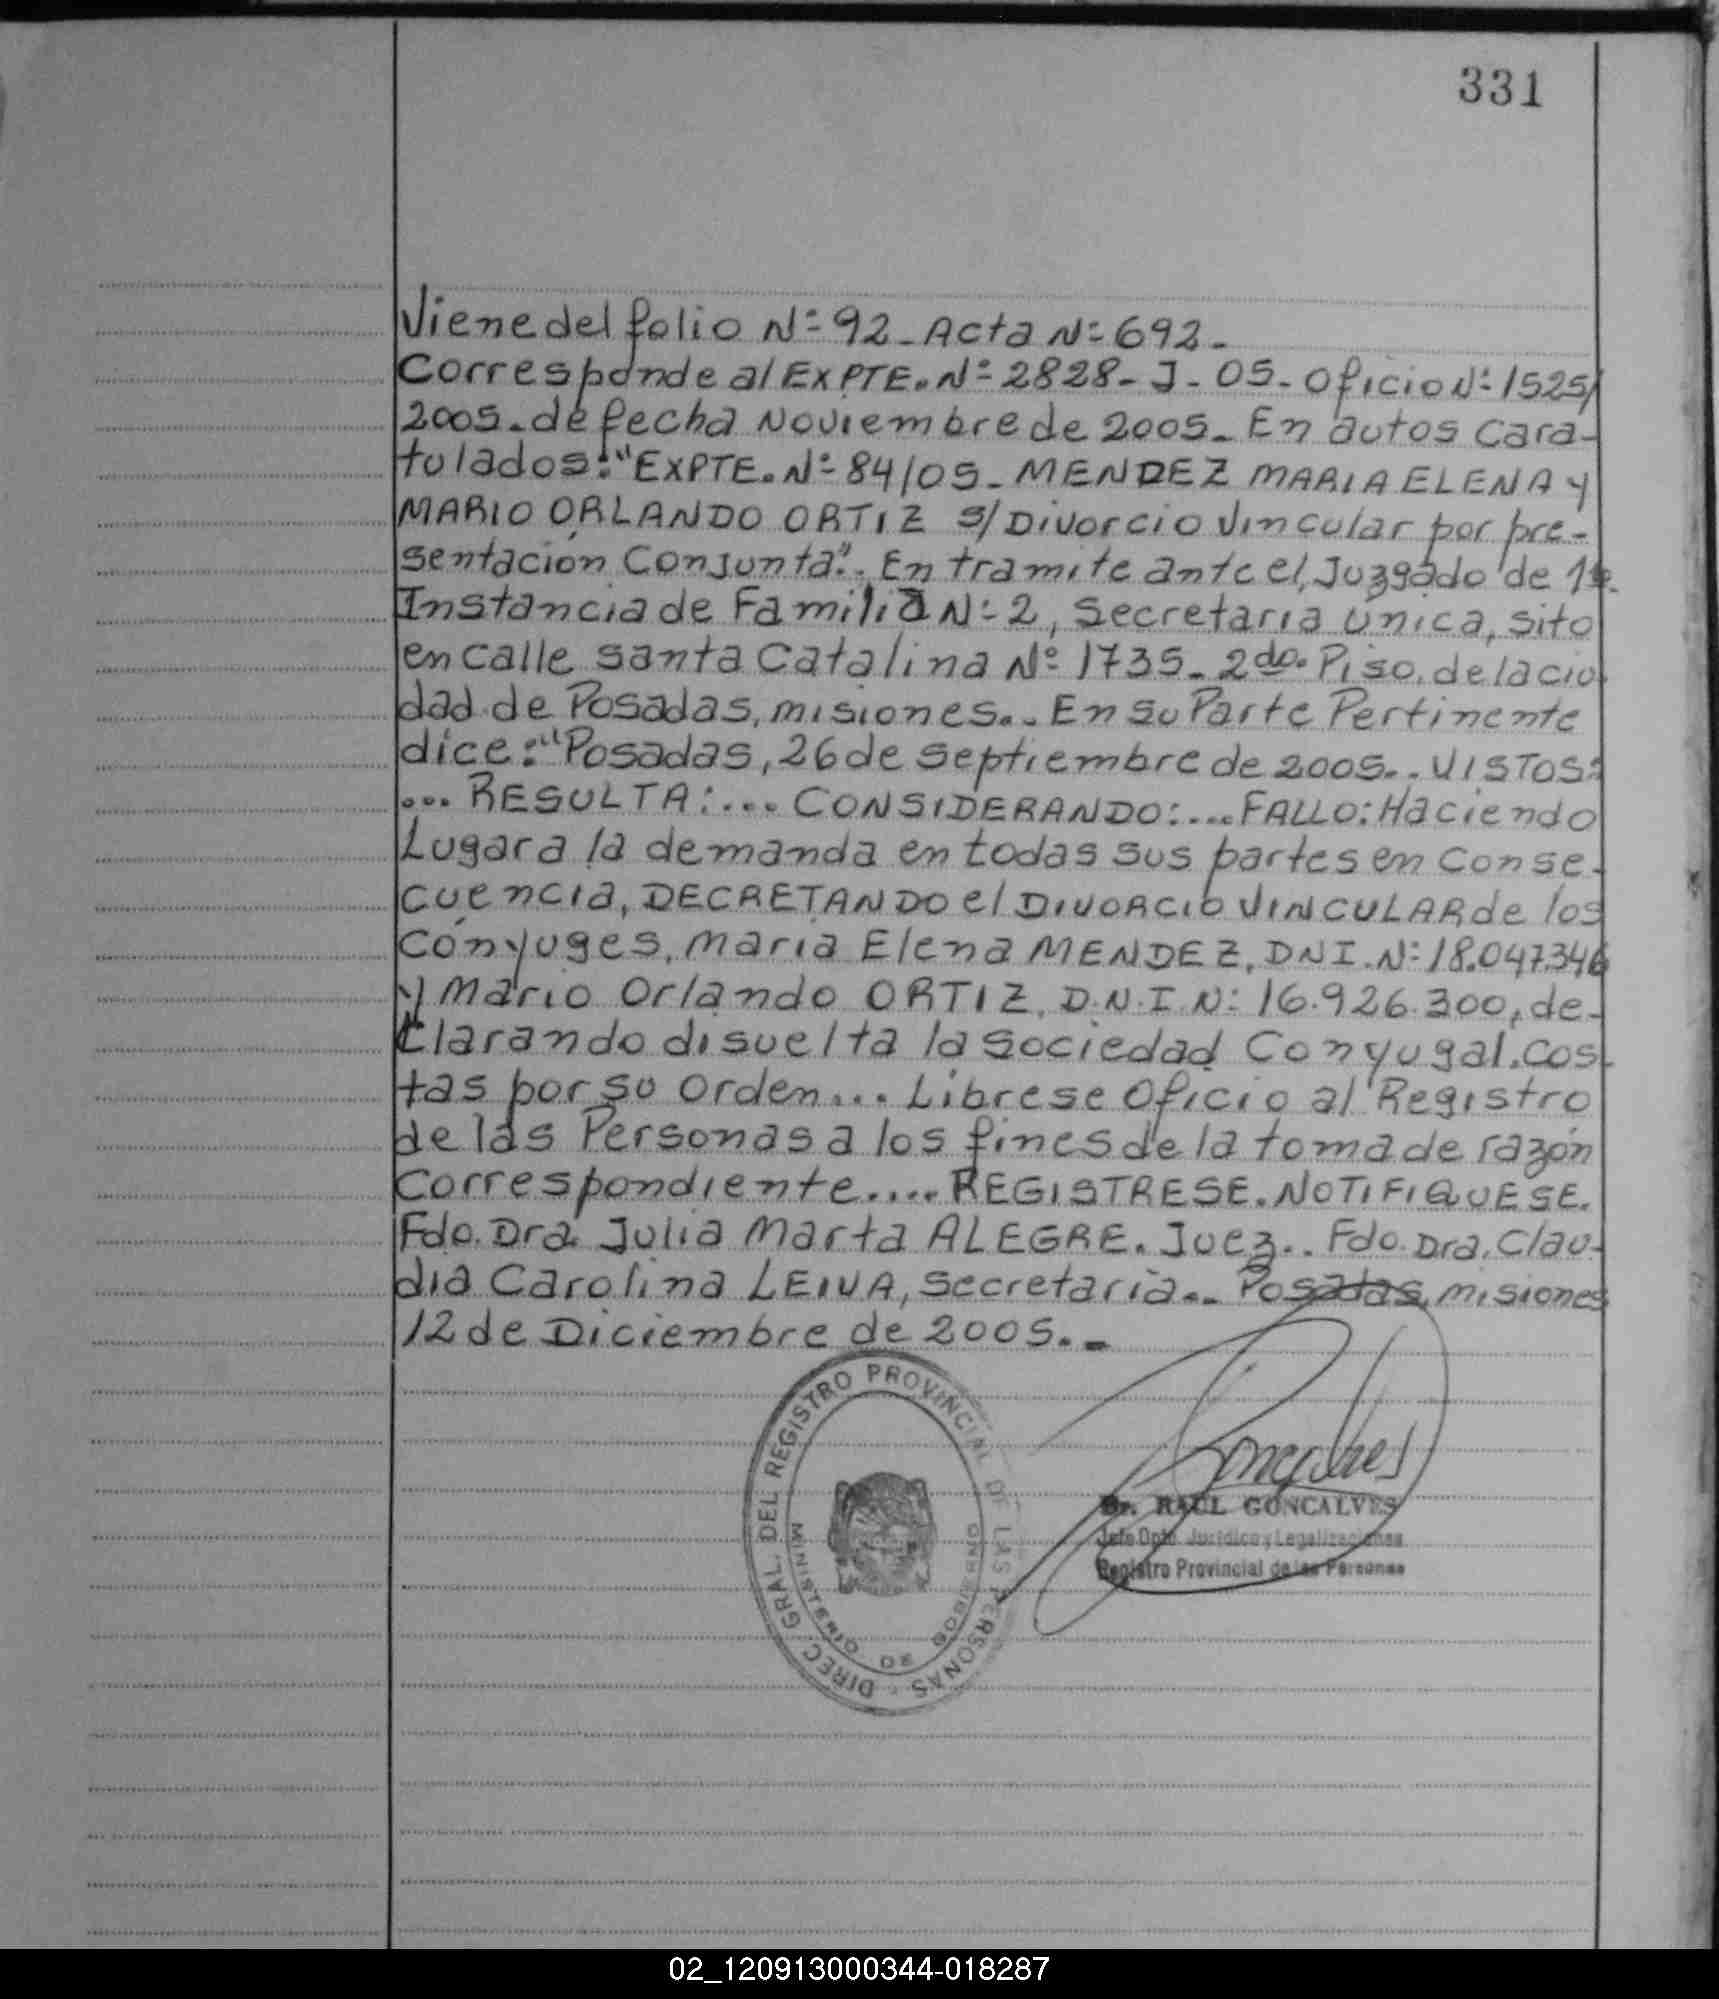 331
Viene del folio Nº 92 - Acta Nº 692 -
Corresponde al EXPTE. Nº 2828 - J - 05 - Oficio Nº 1525/
2005. de fecha Noviembre de 2005 - En autos Cara-
tulados: "EXPTE. Nº 84/05 - MENDEZ MARIA ELENA y
MARIO ORLANDO ORTIZ S/ Divorcio Vincular por pre-
sentación Conjunta". En tramite ante el, Juzgado de 1ª.
Instancia de Familia Nº 2, Secretaria Unica, sito
en Calle Santa Catalina Nº 1735 - 2do. Piso. de la ciu
dad de Posadas, misiones.. En su Parte Pertinente
dice: "Posadas, 26 de Septiembre de 2005.. VISTOS:
... RESULTA: .... CONSIDERANDO: .... FALLO: Haciendo
Lugar a la demanda en todas sus partes en Conse-
cuencia, DECRETANDO el DIVORCIO VINCULAR de los
Cónyuges, Maria Elena MENDEZ, DNI. Nº 18.047.346
y Mario Orlando ORTIZ, D.N.I. Nº 16.926.300, de-
clarando disuelta la Sociedad Conyugal. Cos-
tas por su Orden... Librese Oficio al Registro
de las Personas a los fines de la toma de razón
Correspondiente..... REGISTRESE. NOTIFIQUESE.
Fdo. Dra. Julia Marta ALEGRE. Juez.. Fdo. Dra. Clau-
dia Carolina LEIVA, Secretaria.. Posadas, misiones
12 de Diciembre de 2005. -
DIREC. GRAL. DEL REGISTRO PROVINCIAL DE LAS PERSONAS
MINISTERIO DE GOBIERNO
Goncalves
Dr. RAUL GONCALVES
Jefe Dpto. Jurídico y Legalizaciones
Registro Provincial de las Personas
02_120913000344-018287